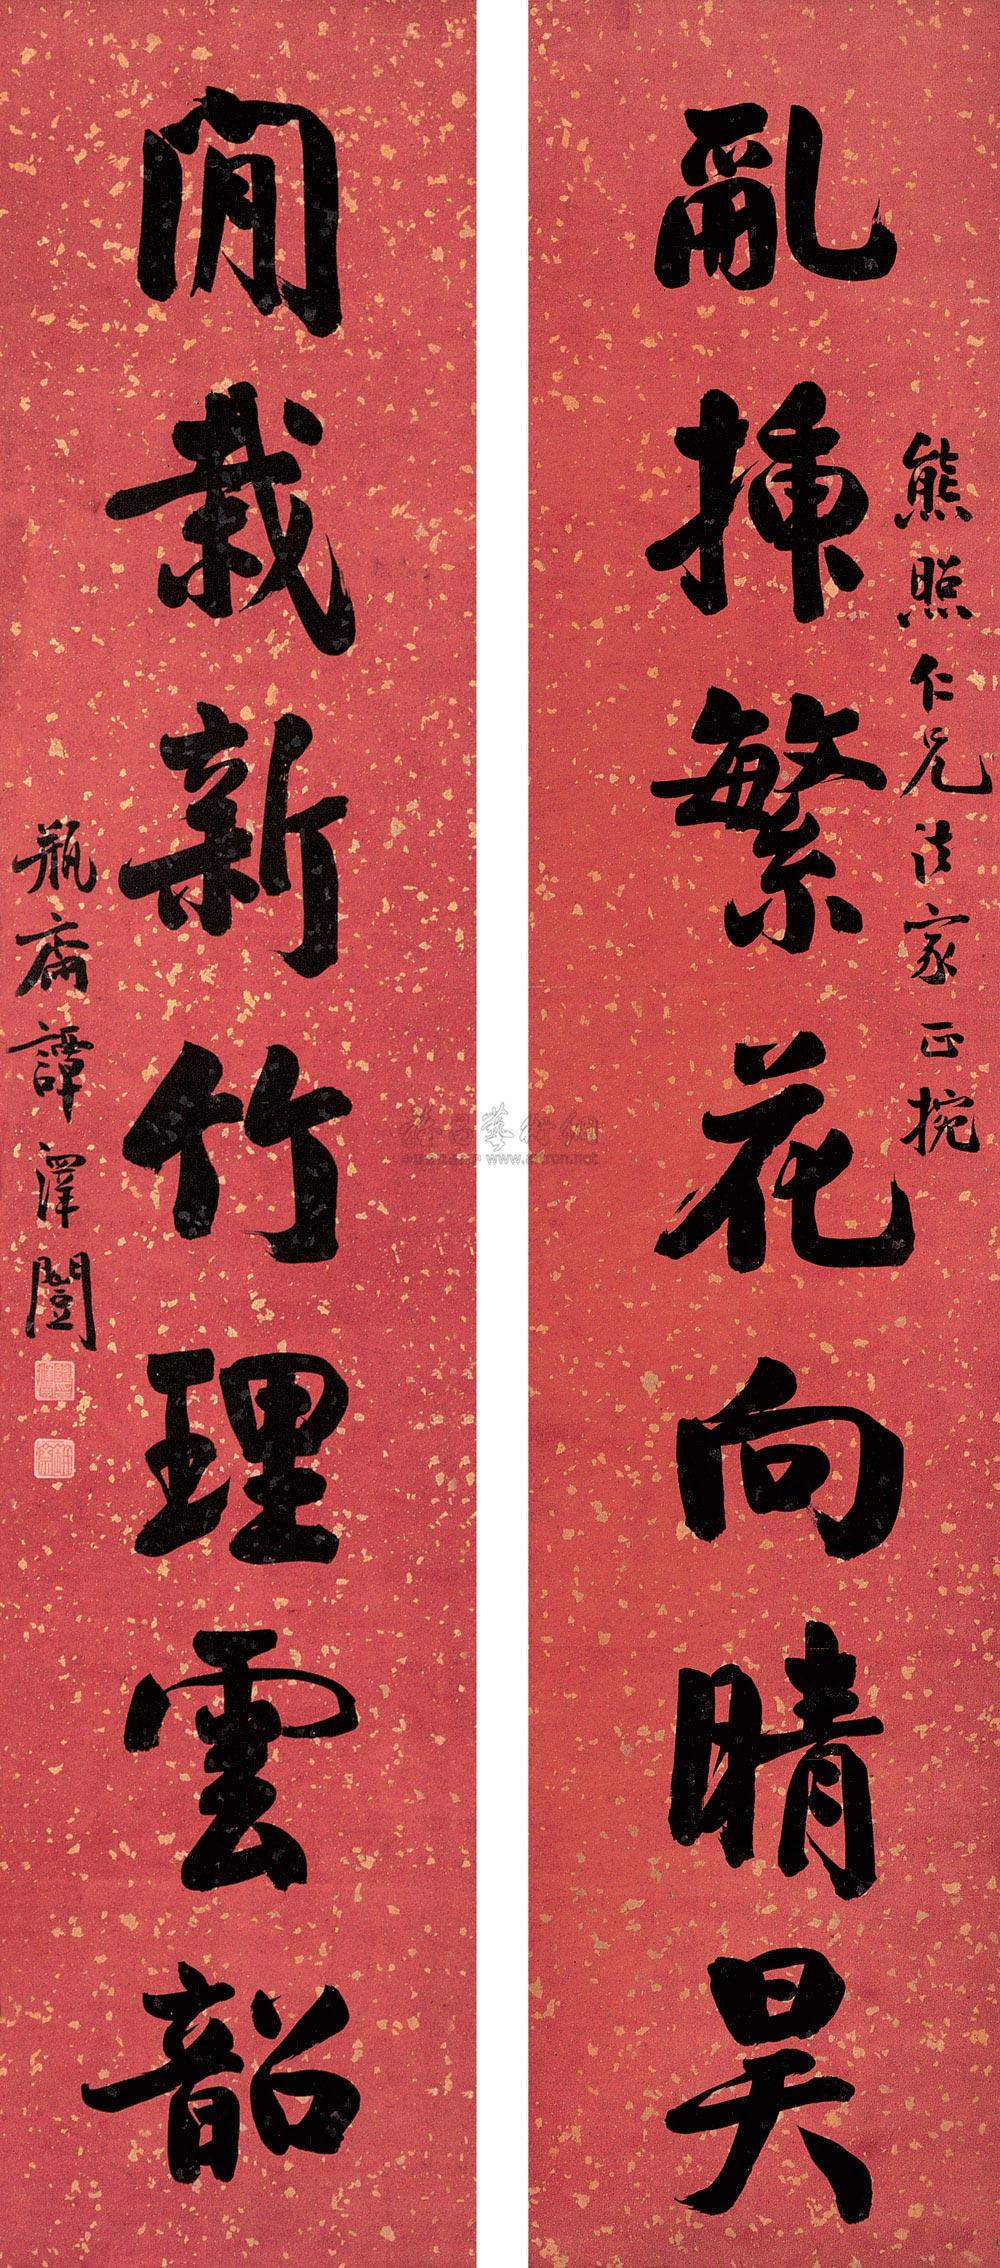 亂插繁花向晴昊
熊照仁兄法家正捥
閒栽新竹理雲韶
瓶齋譚澤闓